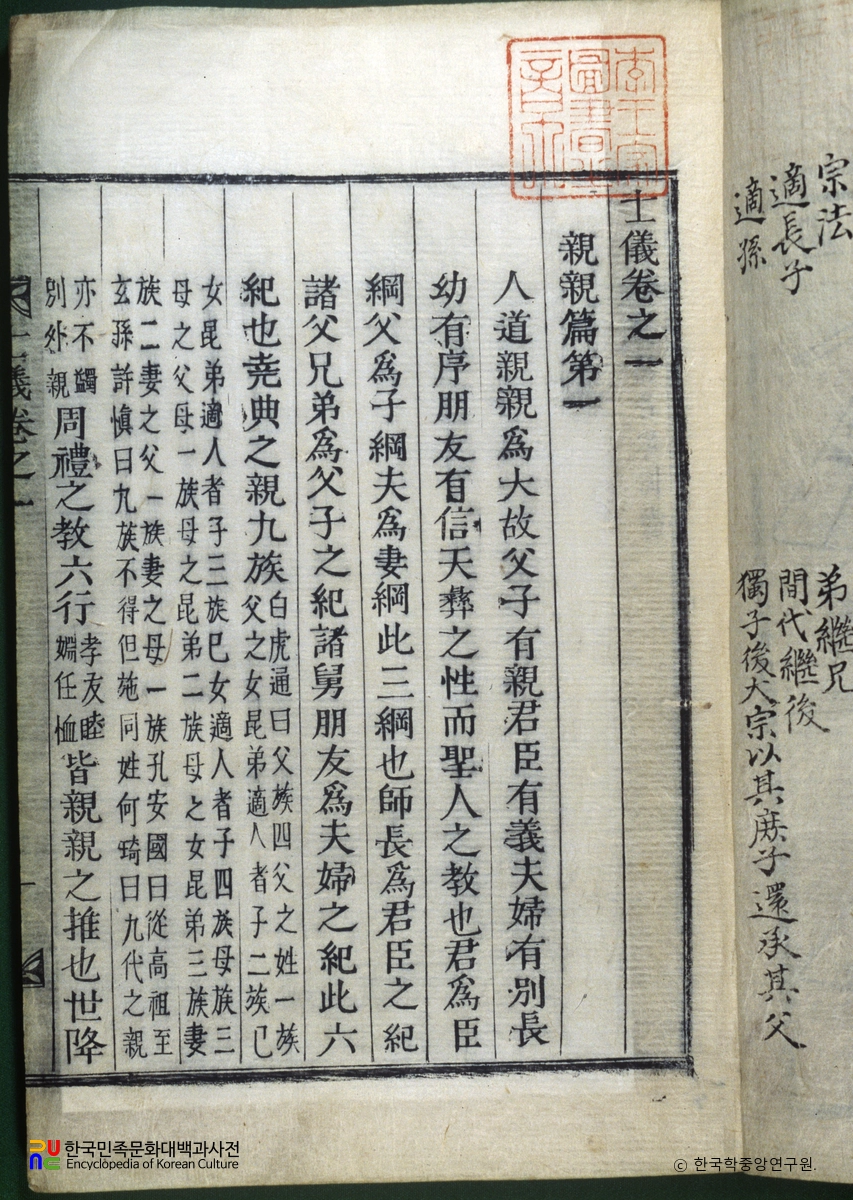 宗法
適長子
適孫
弟繼兄
間代繼後
獨子後大宗以其庶子還承其父
士儀卷之一
親親篇第一
人道親親爲大故父子有親君臣有義夫婦有別長
幼有序朋友有信天彝之性而聖人之教也君爲臣
綱父爲子綱夫爲妻綱此三綱也師長爲君臣之紀
諸父兄弟爲父子之紀諸舅朋友爲夫婦之紀此六
紀也堯典之親九族白虎通曰父族四父之姓一族
父之女昆弟適人者子二族己
女昆弟適人者子三族己女適人者子四族母族三
母之父母一族母之昆弟二族母之女昆弟三族妻
族二妻之父一族妻之母一族孔安國曰從高祖至
玄孫許慎曰九族不得但施同姓何琦曰九代之親
亦不蠲
別外親
周禮之教六行
孝友睦
婣任恤
皆親親之推也世降
士儀卷之一
一
한국민족문화대백과사전
Encyclopedia of Korean Culture
ⓒ 한국학중앙연구원.